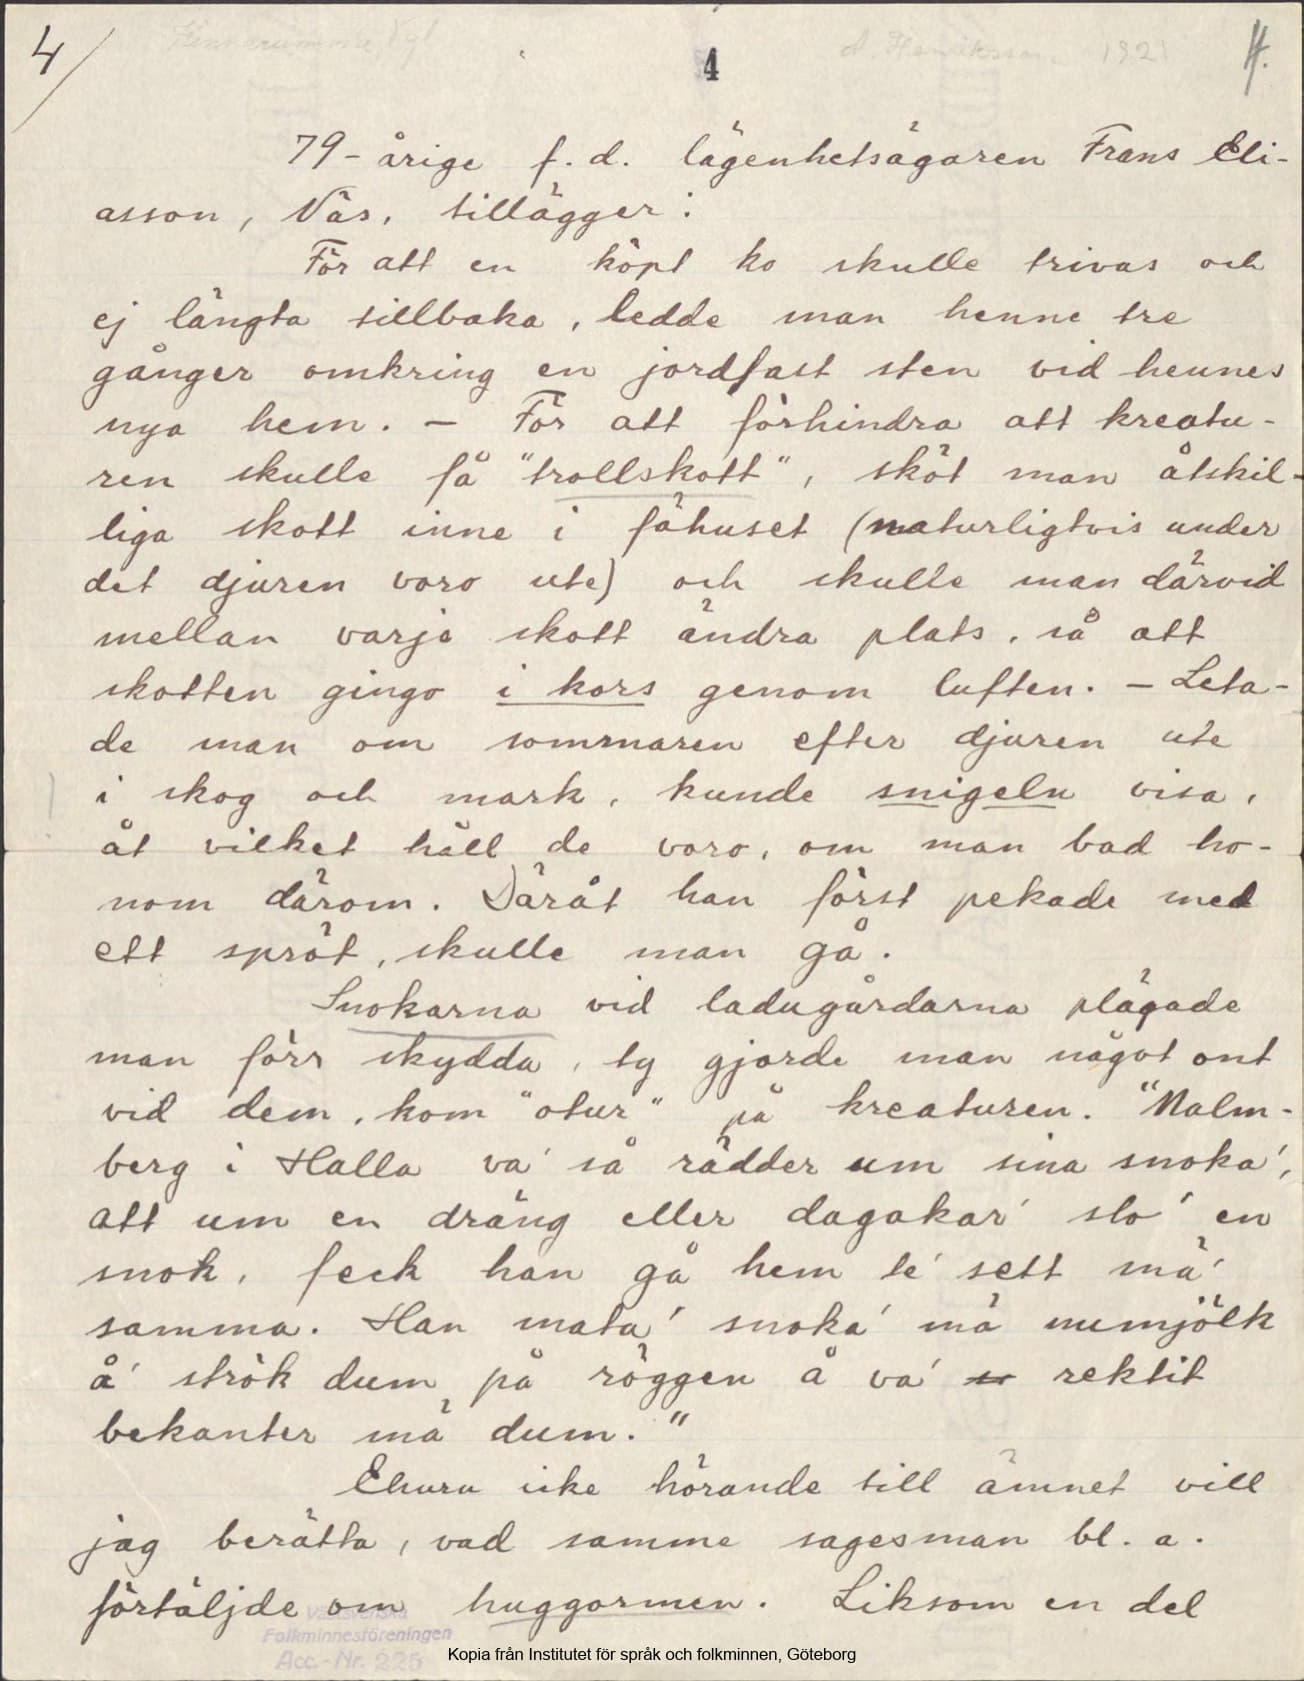 4
4
A. Henriksson 1921
4.
79-årige f. d. lägenhetsägaren Frans Eli-
asson, Näs, tillägger:
För att en köpt ko skulle trivas och
ej längta tillbaka, ledde man henne tre
gånger omkring en jordfast sten vid hennes
nya hem. – För att förhindra att kreatu-
ren skulle få "trollskott", sköt man åtskil-
liga skott inne i fähuset (naturligtvis under
det djuren voro ute) och skulle man därvid
mellan varje skott ändra plats, så att
skotten gingo i kors genom luften. – Leta-
de man om sommaren efter djuren ute
i skog och mark, kunde snigeln visa,
åt vilket håll de voro, om man bad ho-
nom därom. Däråt han först pekade med
ett spröt, skulle man gå.
Snokarna vid ladugårdarna plägade
man förr skydda, ty gjorde man något ont
vid dem, kom "otur" på kreaturen. "Malm-
berg i Halla va' så rädder um sina snoka',
att um en dräng eller dagakar' slo' en
snok, feck han gå hem te' sett mä'
samma. Han mata' snoka' mä numjölk
å' strök dum på röggen å va' rektit
bekanter mä dum."
Ehuru icke hörande till ämnet vill
jag berätta, vad samme sagesman bl. a.
förtäljde om huggormen. Liksom en del
Västsvenska
Folkminnesföreningen
Acc.-Nr. 225
Kopia från Institutet för språk och folkminnen, Göteborg